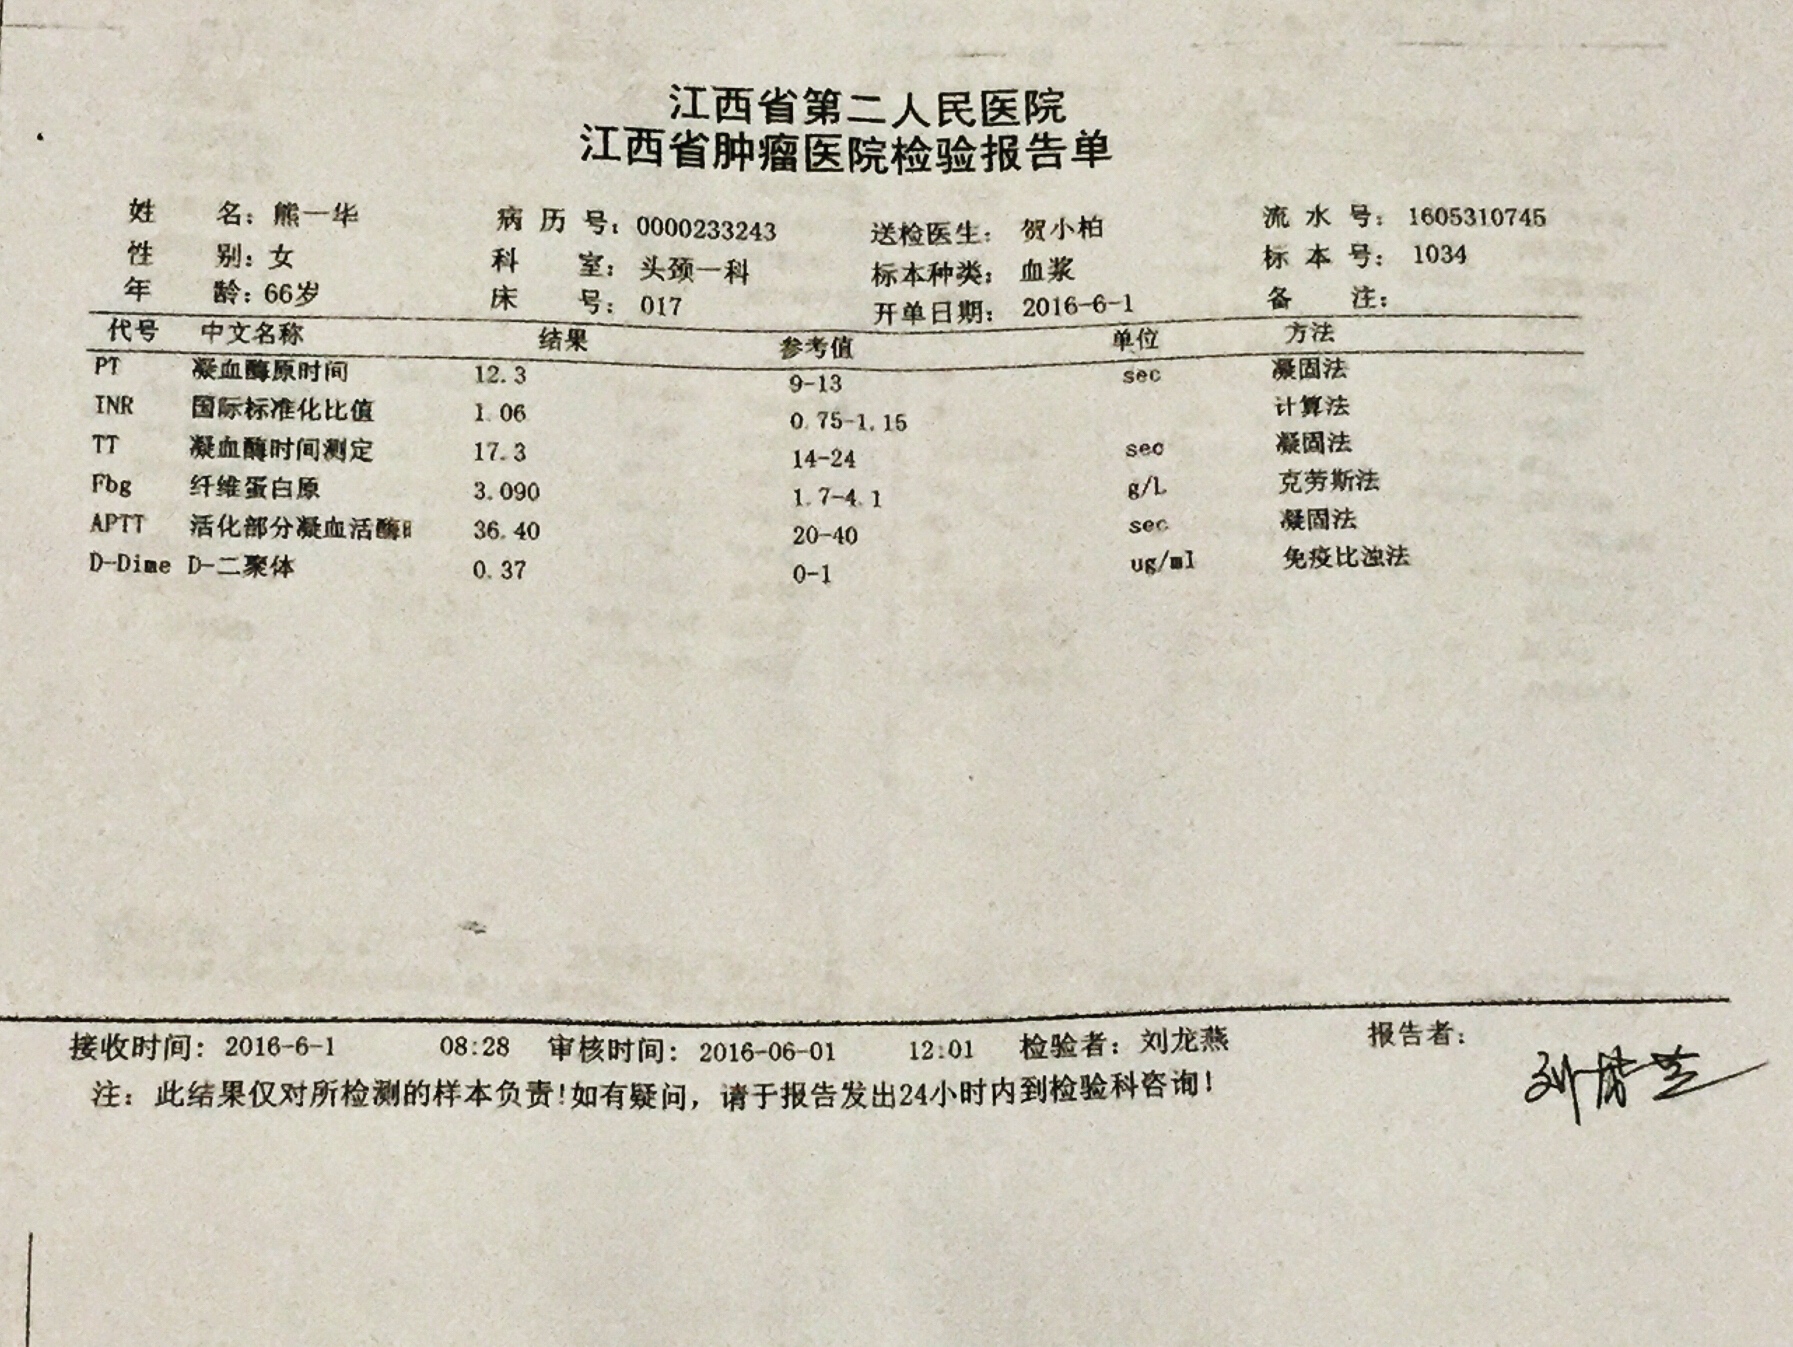 江西省第二人民医院
江西省肿瘤医院检验报告单
姓 名：熊一华 病 历 号：0000233243 送检医生：贺小柏 流 水 号：1605310745
性 别：女 科 室：头颈一科 标本种类：血浆 标 本 号：1034
年 龄：66岁 床 号：017 开单日期：2016-6-1 备 注：
代号 中文名称 结果 参考值 单位 方法
PT 凝血酶原时间 12.3 9-13 sec 凝固法
INR 国际标准化比值 1.06 0.75-1.15 计算法
TT 凝血酶时间测定 17.3 14-24 sec 凝固法
Fbg 纤维蛋白原 3.090 1.7-4.1 g/L 克劳斯法
APTT 活化部分凝血活酶 36.40 20-40 sec 凝固法
D-Dime D-二聚体 0.37 0-1 ug/ml 免疫比浊法
接收时间：2016-6-1 08:28 审核时间：2016-06-01 12:01 检验者：刘龙燕 报告者：
注：此结果仅对所检测的样本负责!如有疑问，请于报告发出24小时内到检验科咨询!